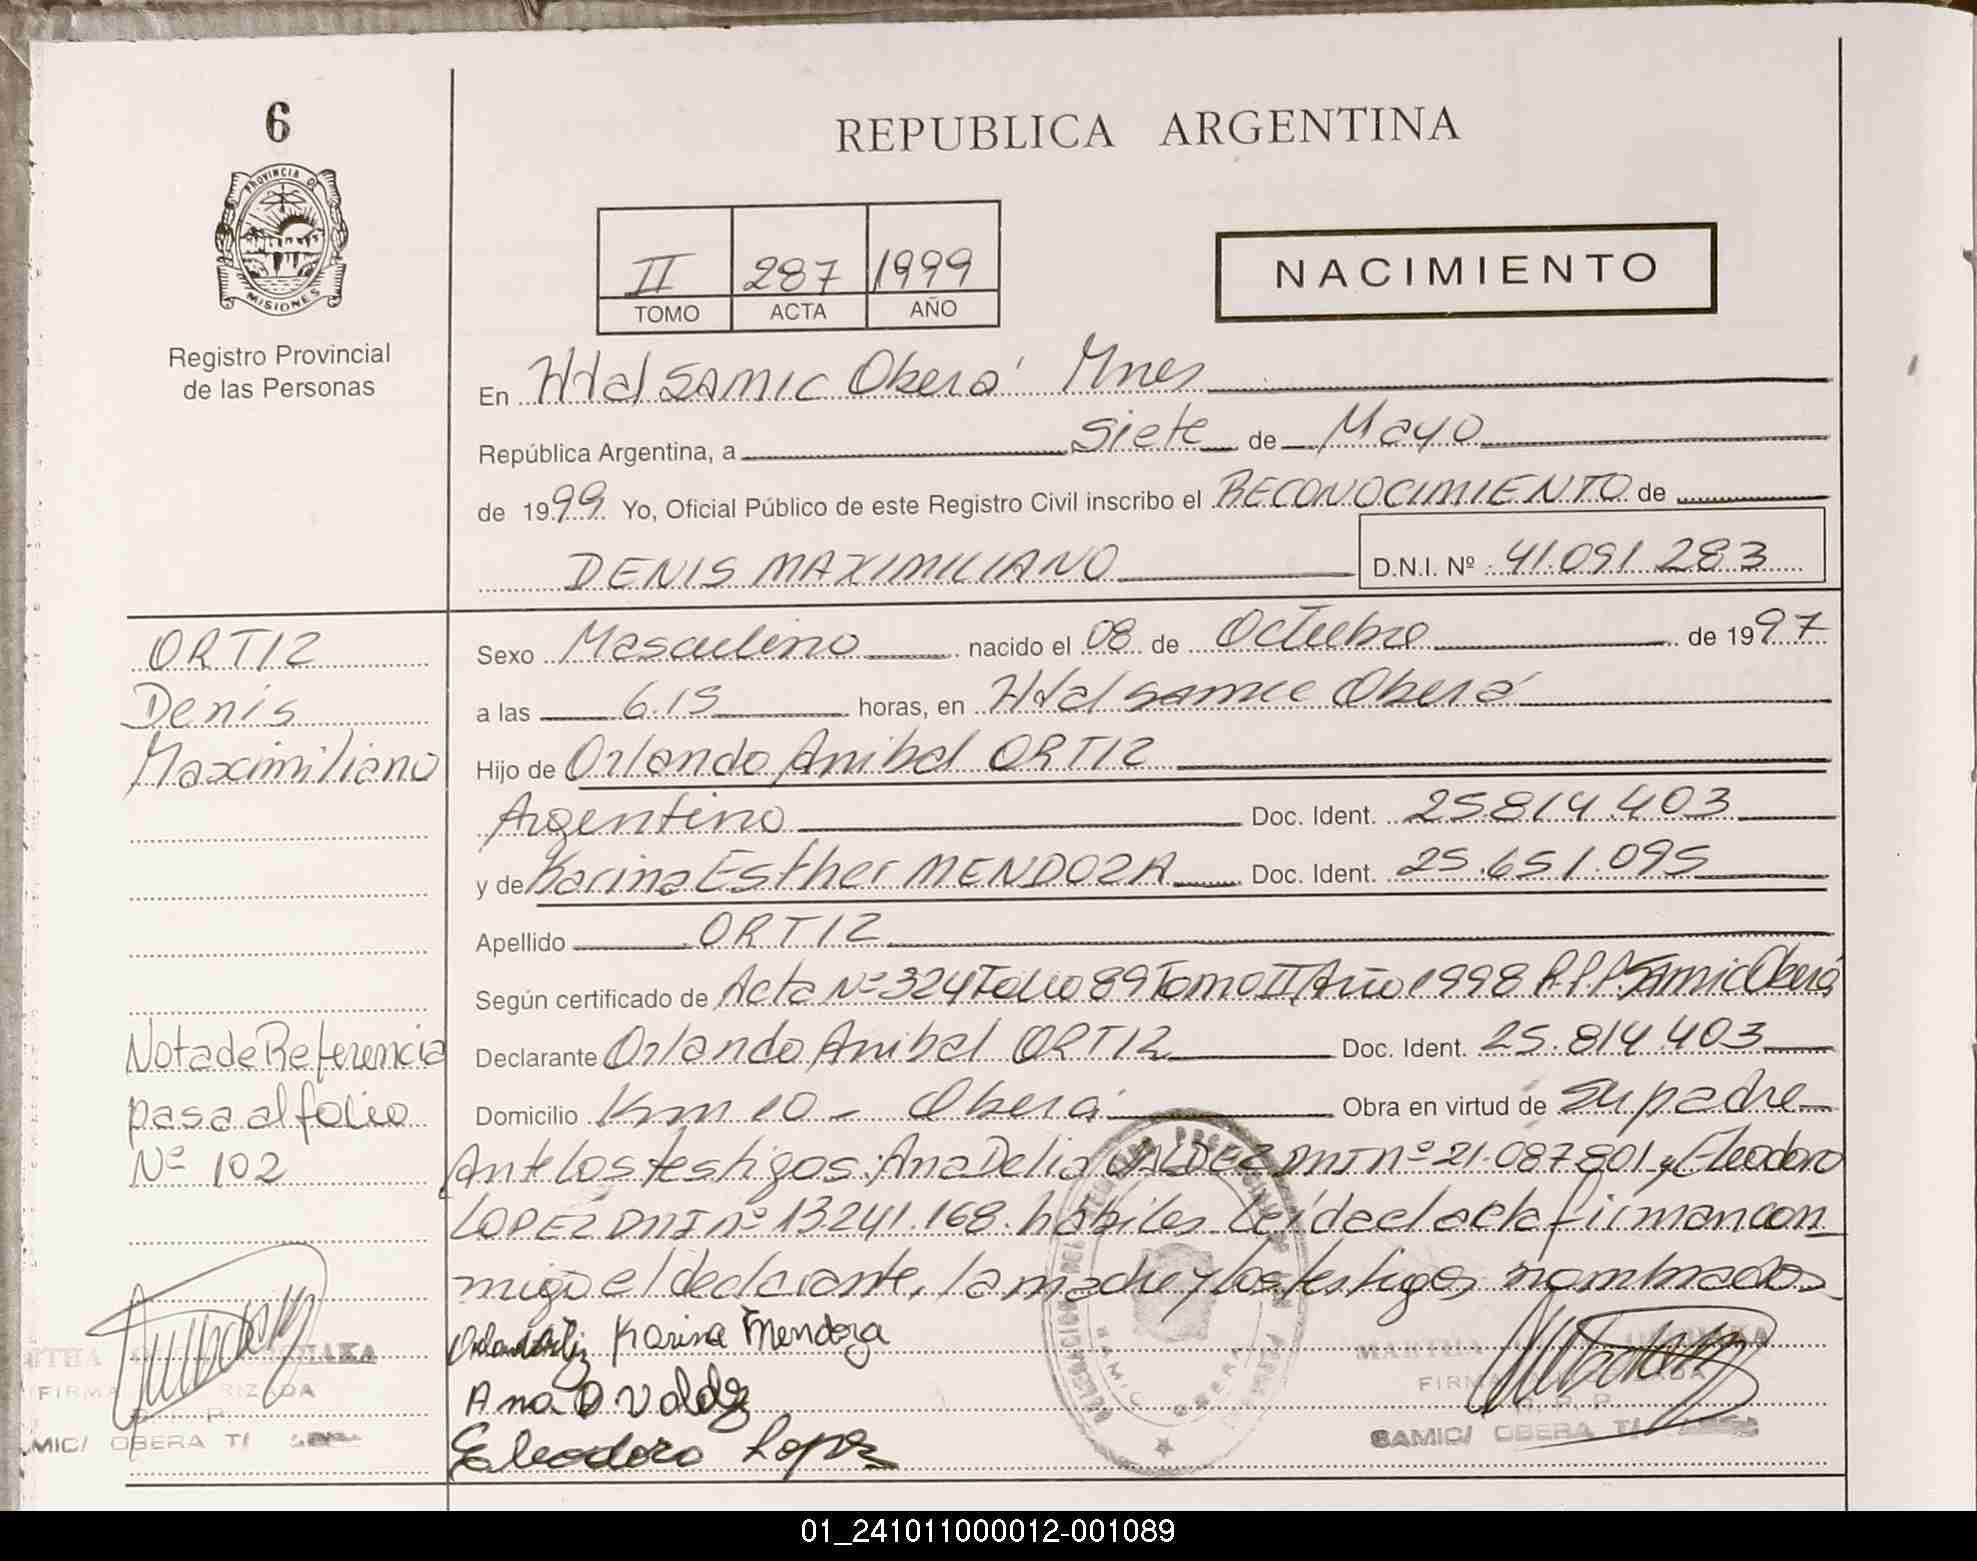 6
PROVINCIA DE
MISIONES
Registro Provincial
de las Personas
REPUBLICA ARGENTINA
II 287 1999
TOMO ACTA AÑO
NACIMIENTO
En Htal SAMIC Oberá Mnes
República Argentina, a siete de Mayo
de 1999 Yo, Oficial Público de este Registro Civil inscribo el RECONOCIMIENTO de
DENIS MAXIMILIANO D.N.I. Nº 41.091.283
ORTIZ
Denis
Maximiliano
Sexo Masculino nacido el 08 de Octubre de 1997
a las 6.15 horas, en Htal samic Oberá
Hijo de Orlando Anibal ORTIZ
Argentino Doc. Ident. 25.814.403
y de Karina Esther MENDOZA Doc. Ident. 25.651.095
Apellido ORTIZ
Según certificado de Acta Nº 324 Folio 89 Tomo II Año 1998 R.P.P. Samic Oberá
Nota de Referencia
pasa al folio
Nº 102
Declarante Orlando Anibal ORTIZ Doc. Ident. 25.814.403
Domicilio Km 10 - Oberá Obra en virtud de su padre
Ante los testigos: Ana Delia VALDEZ DNI nº 21.087.801 y Eleodoro
LOPEZ DNI nº 13.241.168. hábiles. Leída el acta firman con
migo el declarante, la madre y los testigos nombrados
Karina Mendoza
Ana D Valdez
Eleodoro Lopez
MARTHA
FIRMA
SAMIC/ OBERA
SAMIC/ OBERA
01_241011000012-001089